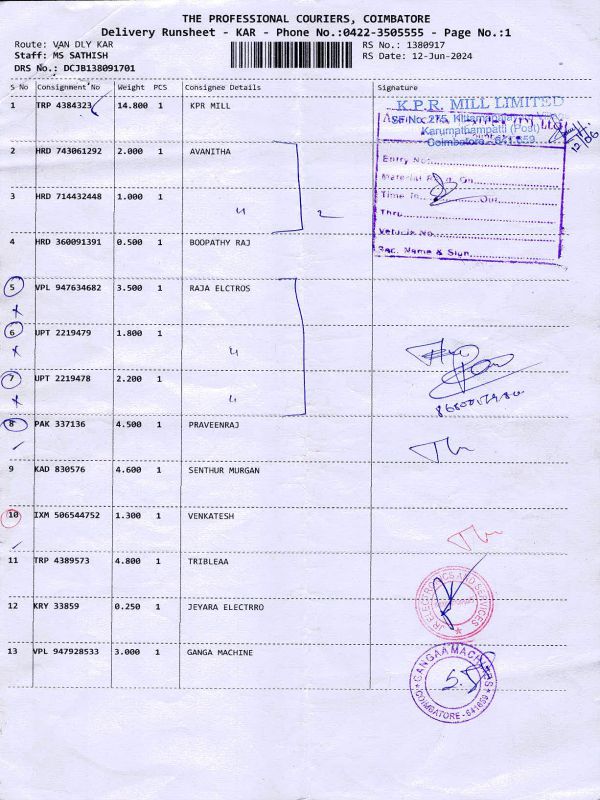 THE PROFESSIONAL COURIERS, COIMBATORE
Delivery Runsheet - KAR - Phone No.:0422-3505555 - Page No.:1
Route: VAN DLY KAR RS No.: 1380917
Staff: MS SATHISH RS Date: 12-Jun-2024
DRS No.: DCJB138091701
S No Consignment No Weight PCS Consignee Details Signature
1 TRP 4384323 14.800 1 KPR MILL
K.P.R. MILL LIMITED
SF.No: 275,
Karumathampatti (Post)
Coimbatore - 641 659.
12/06
2 HRD 743061292 2.000 1 AVANITHA
Entry No:
Time In Out
3 HRD 714432448 1.000 1 " 2
Thru
Vehicle No.
4 HRD 360091391 0.500 1 BOOPATHY RAJ
Sec. Name & Sign
5 VPL 947634682 3.500 1 RAJA ELCTROS
6 UPT 2219479 1.800 1 "
7 UPT 2219478 2.200 1 "
8 PAK 337136 4.500 1 PRAVEENRAJ
9 KAD 830576 4.600 1 SENTHUR MURGAN
10 IXM 506544752 1.300 1 VENKATESH
11 TRP 4389573 4.800 1 TRIBLEAA
12 KRY 33859 0.250 1 JEYARA ELECTRRO
13 VPL 947928533 3.000 1 GANGA MACHINE
COIMBATORE - 641659